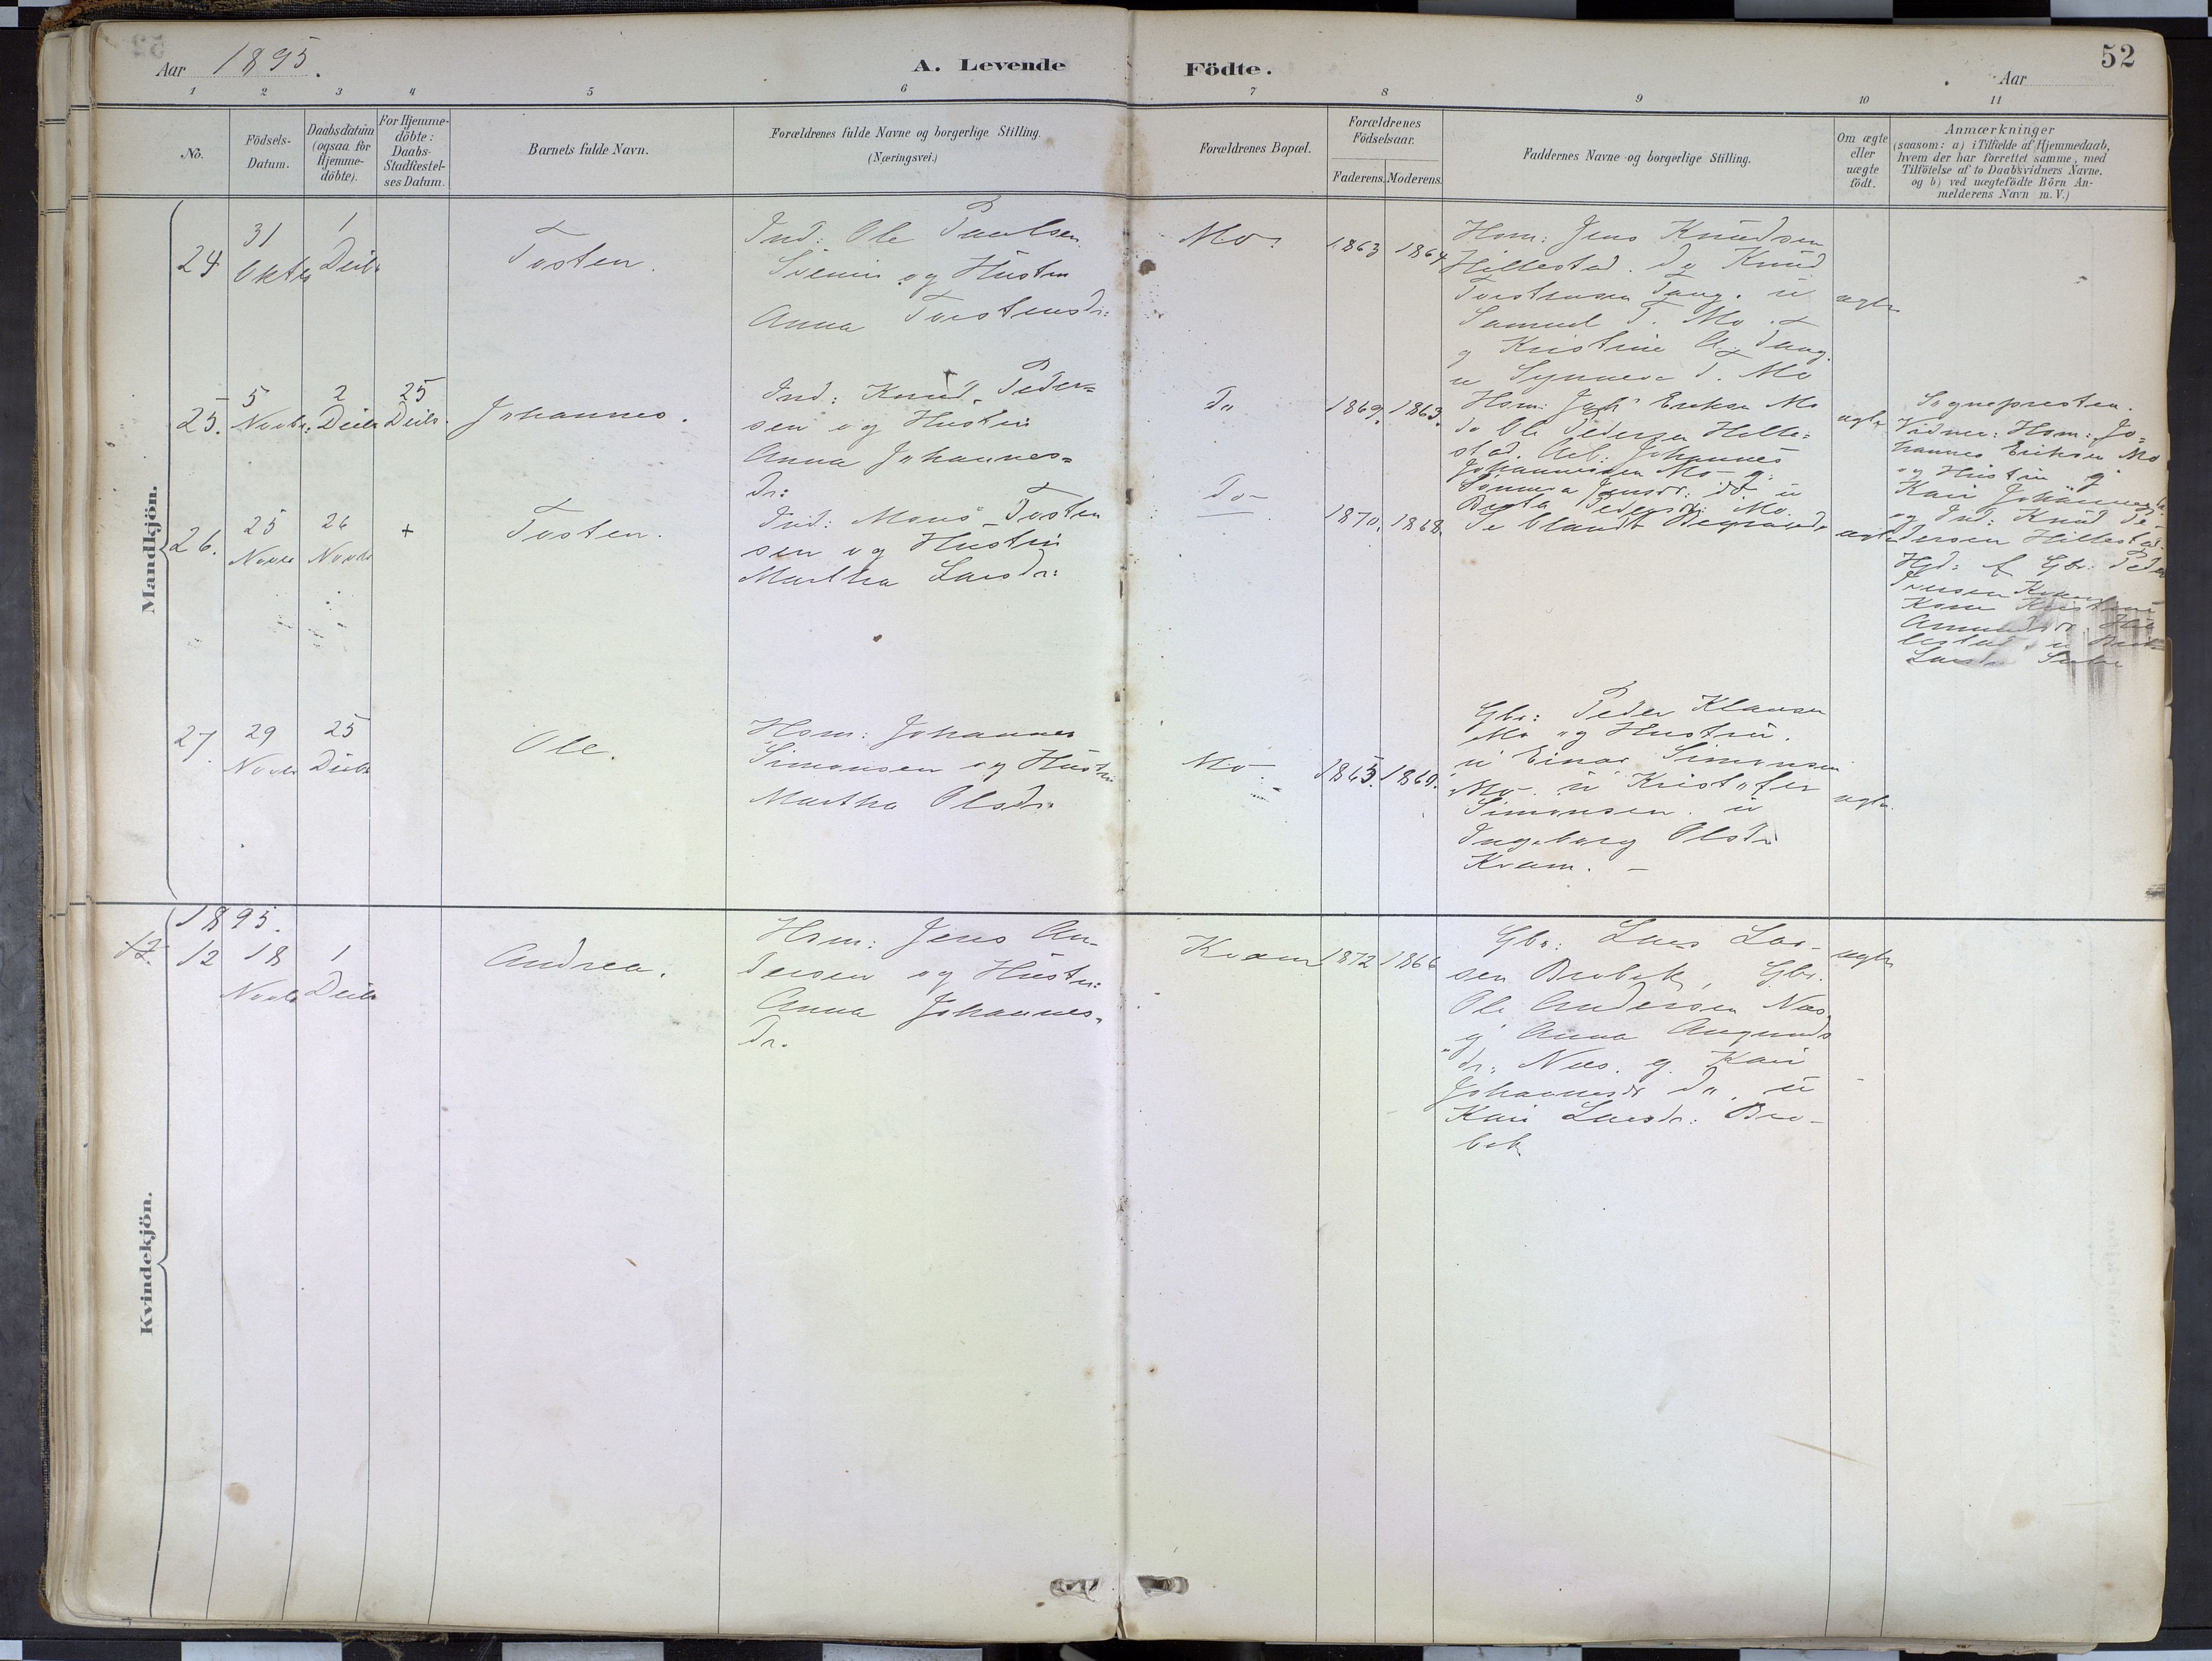 52
Aar 1895.
A. Levende Födte.
Aar
1 2 3 4 5 6 7 8 9 10 11
No.
Födsels-
Datum.
Daabsdatum
(ogsaa for
Hjemme-
döbte).
For Hjemme-
döbte:
Daabs-
Stadfæstel-
ses Datum.
Barnets fulde Navn.
Forældrenes fulde Navne og borgerlige Stilling.
(Næringsvei.)
Forældrenes Bopæl.
Forældrenes
Födselsaar.
Faderens. Moderens.
Faddernes Navne og borgerlige Stilling.
Om ægte
eller
uægte
födt.
Anmærkninger
(saasom: a) i Tilfælde af Hjemmedaab,
hvem der har forrettet samme, med
Tilföielse af to Daabsvidners Navne,
og b) ved uægtefödte Börn An-
melderens Navn m.V.)
Mandkjön.
24
31
Oktbr
1
Decbr
Tosten.
Ind: Ole Paulsen
og Hustru
Anna Torstensdr:
Mo.
1863 1864
Hsm: Jens Knudsen
Hillestad. do Knud
Torstensen Tang. u
Samuel T. Mo
g Kristine Tang.
u Synneva T. Mo
ægte
25.
5
Novbr.
2
Decbr
25
Decbr
Johannes.
Ind: Knud Peder=
sen og Hustru
Anna Johannes=
dr:
Do
1869. 1863.
Hsm: Joh Eriksen Mo
do Ole Pedersen Hille=
stad. Arb: Johannes
Johannessen Mo g:
Jensdr: do u
Berta Pedersdr: Mo.
ægte
Sognepresten.
Vidner: Hsm: Jo=
hannes Eriksen Mo
og Hustru g
Kari Johannesdr.
26.
25
Novbr
26
Novbr
+
Tosten.
Ind: Mons Tosten
sen og Hustru
Martha Larsdr:
Do
1870. 1868.
Se blandt Begravede
ægte
og Ind: Knud Pe-
dersen Hillestad.
Hjd: f Gbr: Peder
Lars
27.
29
Novbr
25
Decbr
Ole.
Hsm: Johannes
Simonsen og Hustru
Martha Olsdr:
Mo.
1865. 1860.
Gbr: Peder Klausen
Mo og Hustru.
u Einar Simonsen
Mo. u Kristofer
Simonsen. u
Ingeborg Olsdr
Kvam. -
ægte
Kvindekjön.
1895.
12
18
Novbr
1
Decbr
Andrea.
Hsm: Jens An-
dersen og Hustru:
Anna Johannes-
dr.
Kvam
1872 1866
Gbr: Lars Lar-
sen Brobak, Gbr.
Ole Andersen Næs,
g Anna Amunds
dr. Næs. g. Kari
Johannesdr do. u
Kari Larsdr: Bro-
bak
ægte